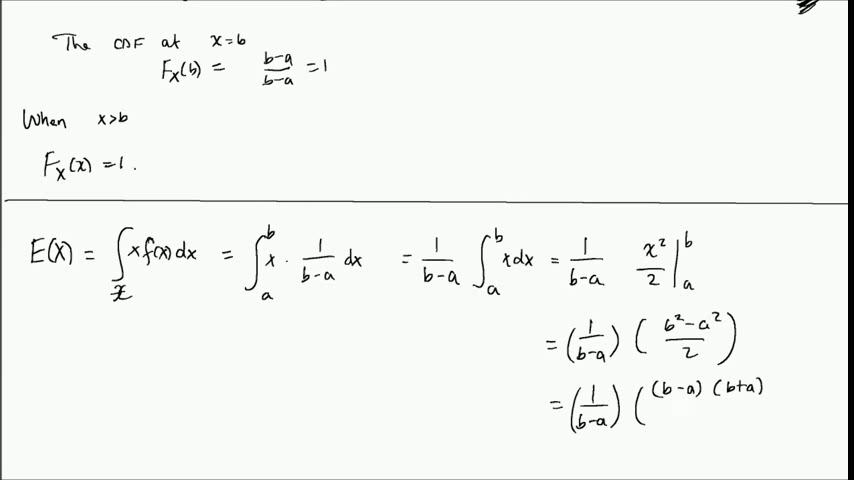 The CDF at x=b
F_X(b) = \frac{b-a}{b-a} = 1
When x>b
F_X(x) = 1.
E(X) = \int_{x} x f(x) dx = \int_a^b x \cdot \frac{1}{b-a} dx = \frac{1}{b-a} \int_a^b x dx = \frac{1}{b-a} \frac{x^2}{2} |_a^b
= (\frac{1}{b-a}) (\frac{b^2-a^2}{2})
= (\frac{1}{b-a}) ( (b-a) (b+a)